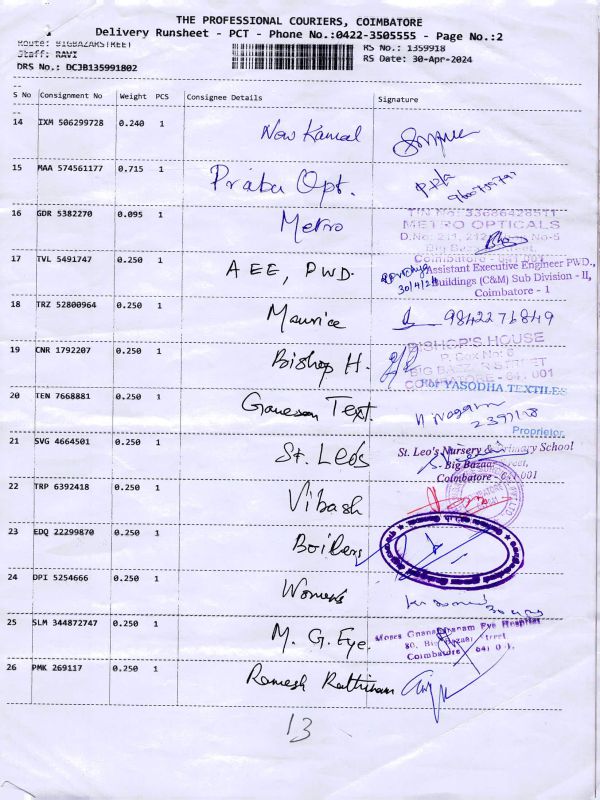 THE PROFESSIONAL COURIERS, COIMBATORE
Delivery Runsheet - PCT - Phone No.:0422-3505555 - Page No.:2
Route: BIGBAZARSTREET
RS No.: 1359918
Staff: RAVI
RS Date: 30-Apr-2024
DRS No.: DCJB135991802
S No Consignment No Weight PCS Consignee Details Signature
14 IXM 506299728 0.240 1 New Kamal
15 MAA 574561177 0.715 1 Praba Opt.
16 GDR 5382270 0.095 1 Metro
METRO OPTICALS
Coimbatore - 641 001
17 TVL 5491747 0.250 1 AEE, PWD.
30/4/24
Assistant Executive Engineer PWD.,
Buildings (C&M) Sub Division - II,
Coimbatore - 1
18 TRZ 52800964 0.250 1 Maurice 9842276849
19 CNR 1792207 0.250 1 Bishop H.
BISHOP'S HOUSE
P. Box No: 6
BIG BAZAAR STREET
COIMBATORE - 641 001
20 TEN 7668881 0.250 1 Ganesan Text.
For YASODHA TEXTILES
Proprietor
21 SVG 4664501 0.250 1 St. Leo's
St. Leo's Nursery & Primary School
Big Bazaar Street,
Coimbatore - 641 001
22 TRP 6392418 0.250 1 Vibash
23 EDQ 22299870 0.250 1 Boilers
24 DPI 5254666 0.250 1 Women's
25 SLM 344872747 0.250 1 M. G. Eye.
Moses Gnanabaranam Eye Hospital
80, Big Bazaar Street
Coimbatore 641 0 1.
26 PMK 269117 0.250 1 Ramesh Rathinam
13